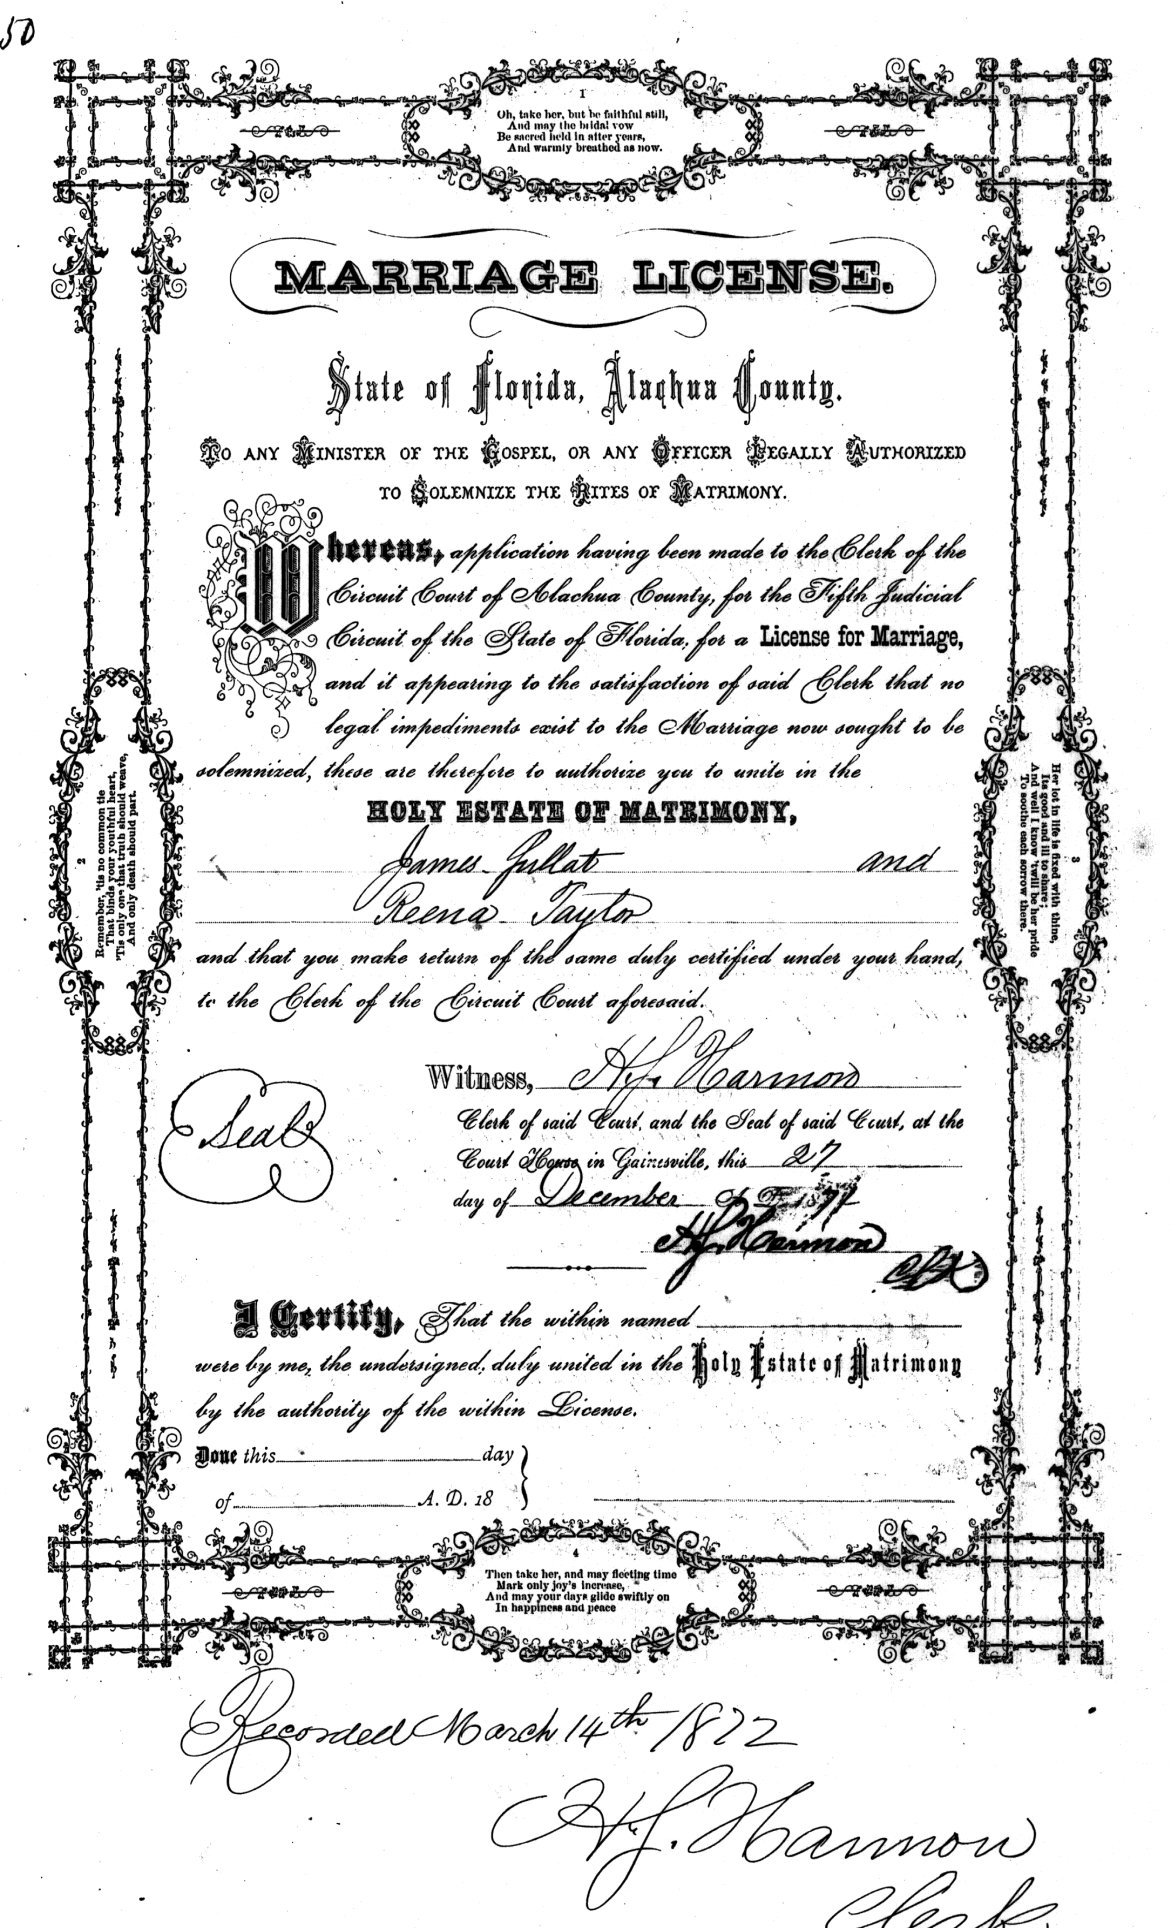 50
1
Oh, take her, but be faithful still,
And may the bridal vow
Be sacred held in after years,
And warmly breathed as now.
MARRIAGE LICENSE.
State of Florida, Alachua County.
TO ANY MINISTER OF THE GOSPEL, OR ANY OFFICER LEGALLY AUTHORIZED
TO SOLEMNIZE THE RITES OF MATRIMONY.
Whereas, application having been made to the Clerk of the
Circuit Court of Alachua County, for the Fifth Judicial
Circuit of the State of Florida, for a License for Marriage,
and it appearing to the satisfaction of said Clerk that no
legal impediments exist to the Marriage now sought to be
solemnized, these are therefore to authorize you to unite in the
HOLY ESTATE OF MATRIMONY,
James Gullat and
Reena Taylor
and that you make return of the same duly certified under your hand,
to the Clerk of the Circuit Court aforesaid.
2
Remember, 'tis no common tie
That binds your youthful heart,
'Tis only one that truth should weave,
And only death should part.
3
Her lot in life is fixed with thine,
Its good and ill to share;
And well I know 'twill be her pride
To soothe each sorrow there.
Seal
Witness, H.J. Harmon
Clerk of said Court, and the Seal of said Court, at the
Court House in Gainesville, this 27
day of December 1877
H.J. Harmon
Clk
I Certify, That the within named
were by me, the undersigned, duly united in the Holy Estate of Matrimony
by the authority of the within License.
Done this day
of A. D. 18
4
Then take her, and may fleeting time
Mark only joy's increase,
And may your days glide swiftly on
In happiness and peace
Recorded March 14th 1872
H.J. Harmon
Clerk